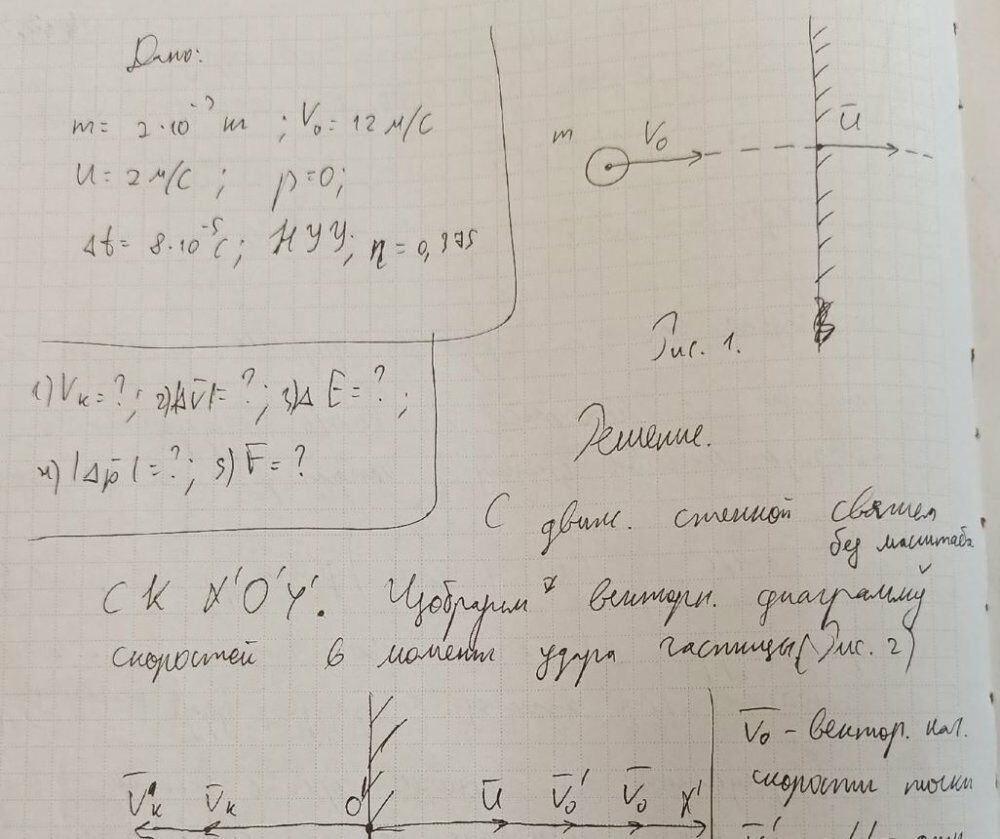 Дано:
m = 2·10⁻³ т ; V₀ = 12 м/с
U = 2 м/с ; β=0;
Δt = 8·10⁻⁵ с; НУУ; η = 0,375
1) Vк = ?; 2) |ΔV̄| = ?; 3) Δ E = ? ;
4) |Δp̄| = ?; 5) F = ?
m V₀ Ū
Рис. 1.
Решение.
С движ. стенкой свяжем
без масштаба
СК X'O'Y'. Изобразим векторн. диаграмму
скоростей в момент удара частицы (Рис. 2)
V̄к' V̄к O' Ū V̄₀' V̄₀ X'
V̄₀ - вектор. нач.
скорости точки